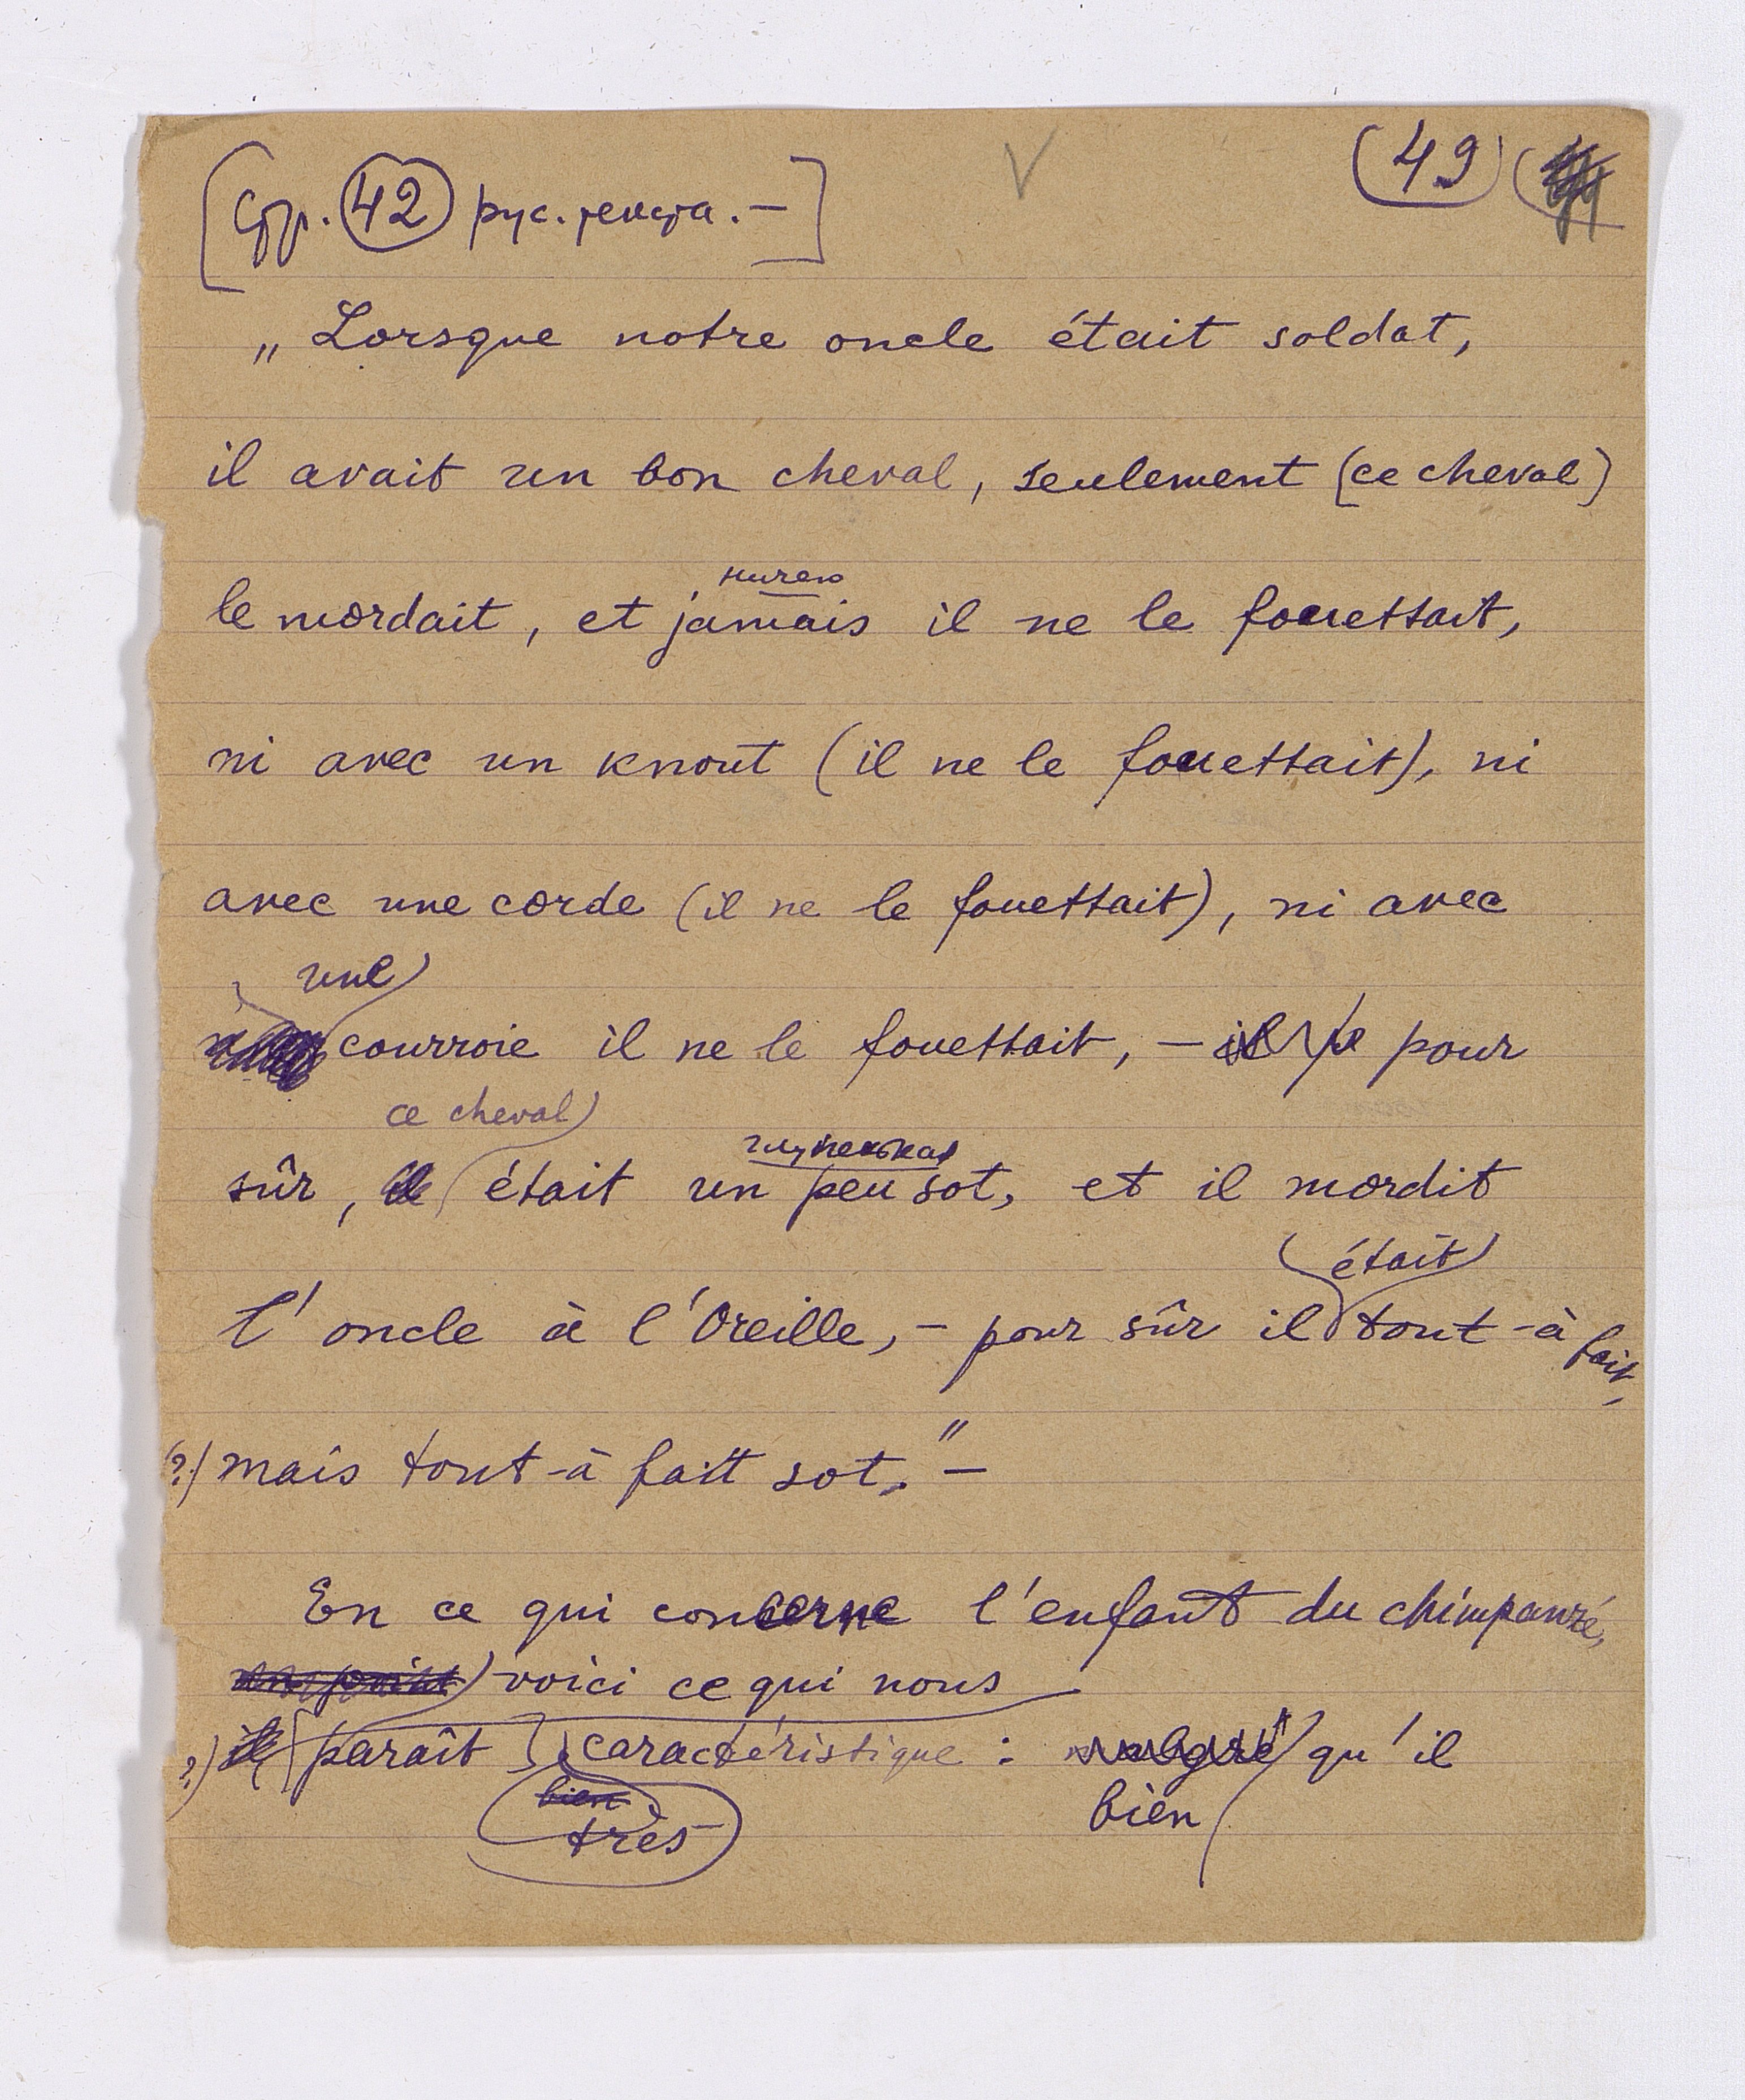 [Стр. 42 рус. текста. —]
(49)
„Lorsque notre oncle était soldat,
il avait un bon cheval, seulement (ce cheval)
le mordait, et jamais il ne le fouettait,
ni avec un knout (il ne le fouettait), ni
avec une corde (il ne le fouettait), ni avec
une
courroie il ne le fouettait, — il pour
ce cheval
sûr, il était un peu sot, et il mordit
était
l'oncle à l'Oreille, — pour sûr il tout-à fait,
(?) mais tout-à fait sot." —
En ce qui concerne l'enfant du chimpanzé,
voici ce qui nous
?) il paraît caractéristique : malgré qu'il
bien bien
très